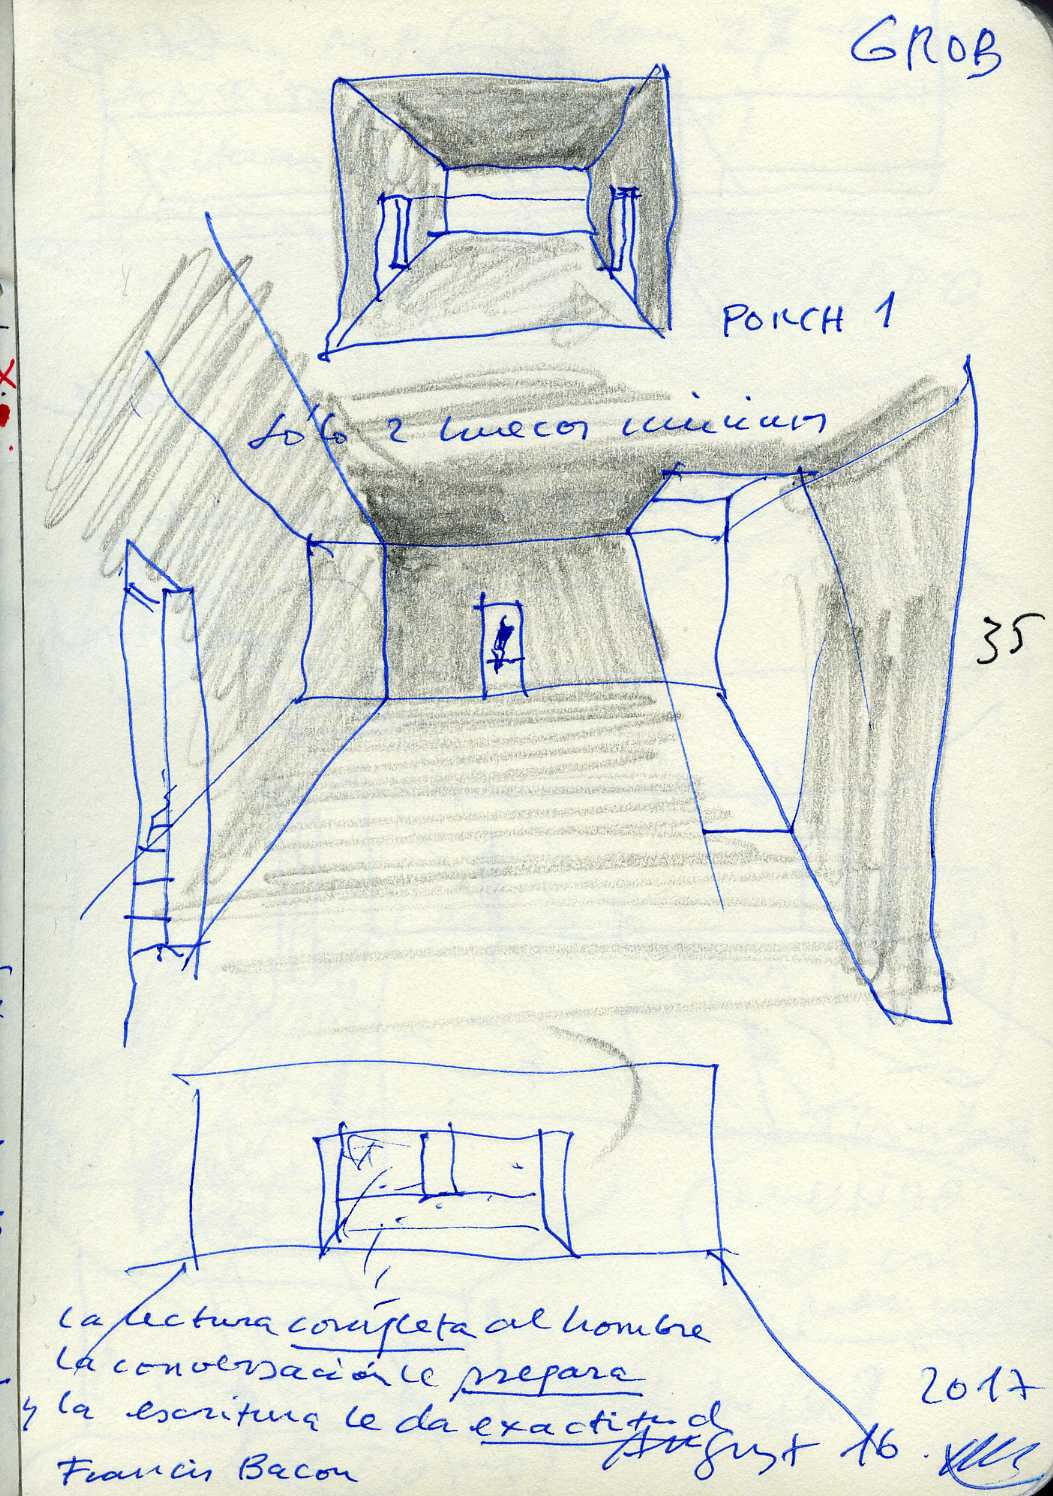 GROB
PORCH 1
Sólo 2 huecos mínimos
35
La lectura completa al hombre
la conversación le prepara
y la escritura le da exactitud
Francis Bacon
2017
August 16.